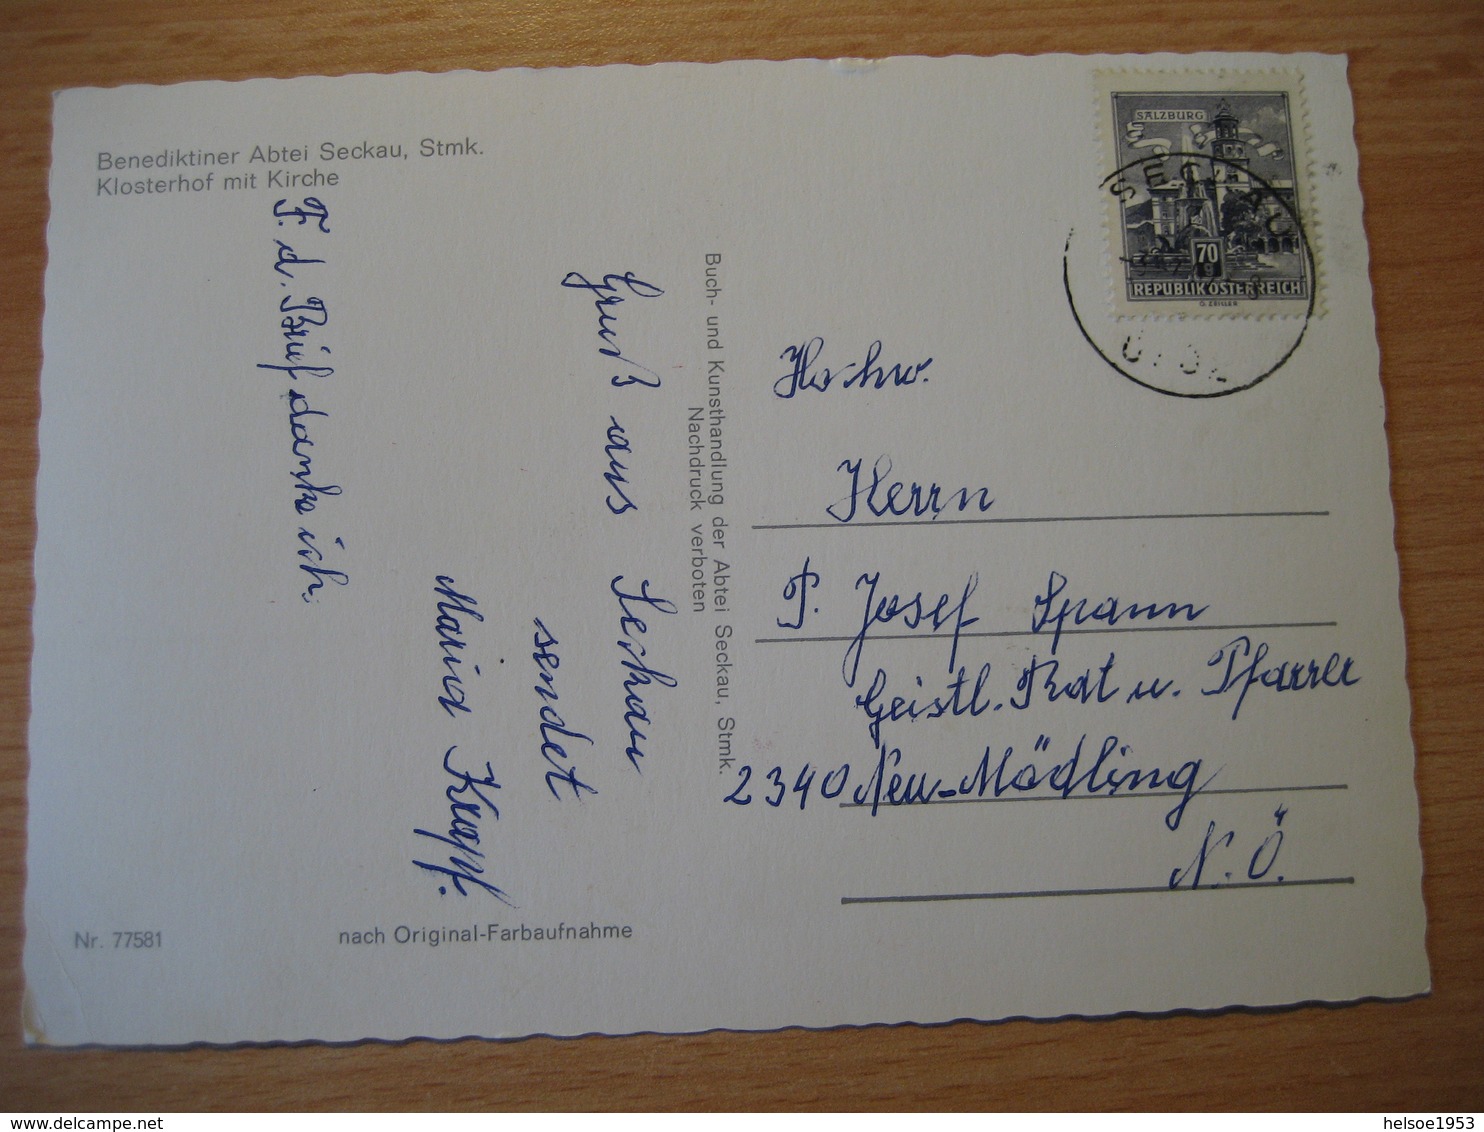 Benediktiner Abtei Seckau, Stmk.
Klosterhof mit Kirche
F. d. Brief danke ich.
Gruß aus Seckau
sendet
Maria Kropf.
Buch- und Kunsthandlung der Abtei Seckau, Stmk.
Nachdruck verboten
SALZBURG
70
g
REPUBLIK ÖSTERREICH
G. ZEILLER
SECKAU
Hochw.
Herrn
P. Josef Spann
Geistl. Rat u. Pfarrer
2340 Neu-Mödling
N.Ö.
Nr. 77581
nach Original-Farbaufnahme
helsoe1953